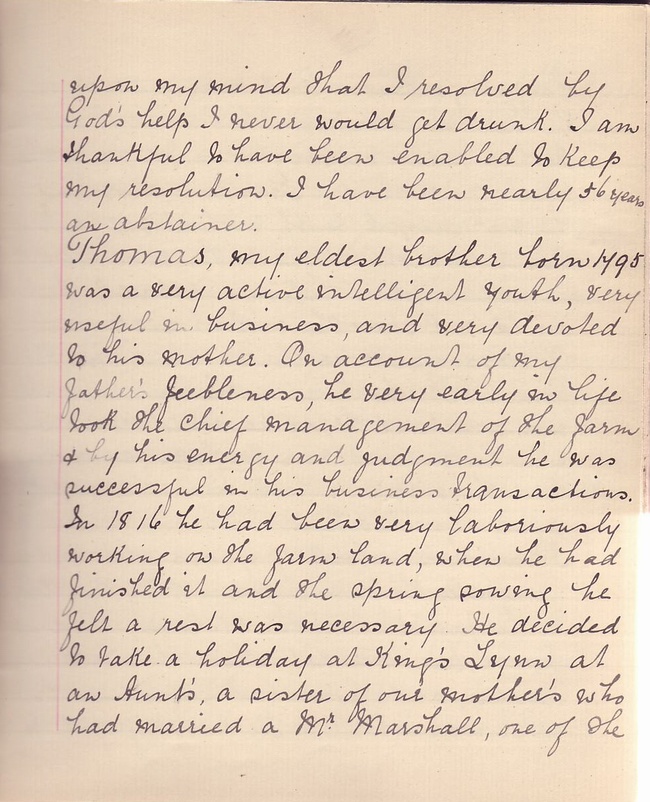 upon my mind that I resolved by
God's help I never would get drunk. I am
thankful to have been enabled to keep
my resolution. I have been nearly 56 years
an abstainer.
Thomas, my eldest brother born 1795
was a very active intelligent youth, very
useful in business, and very devoted
to his mother. On account of my
father's feebleness, he very early in life
took the chief management of the farm
& by his energy and judgment he was
successful in his business transactions.
In 1816 he had been very laboriously
working on the farm land, when he had
finished it and the spring sowing he
felt a rest was necessary. He decided
to take a holiday at King's Lynn at
an Aunt's, a sister of our mother's who
had married a Mr. Marshall, one of the